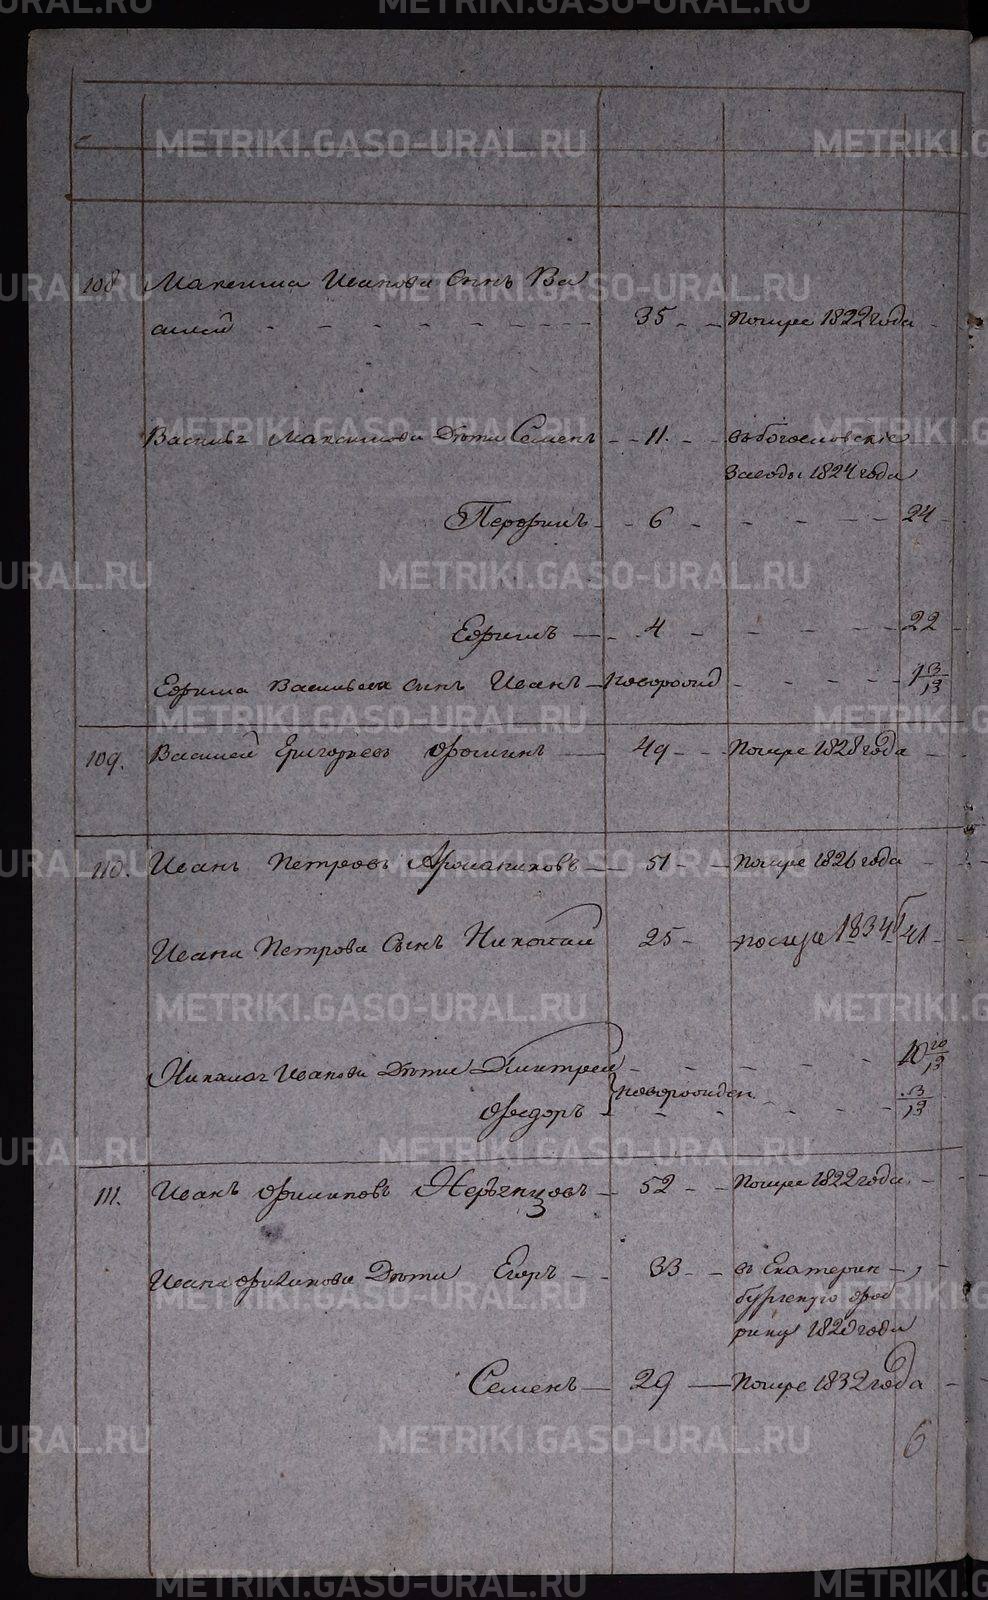 108. Максима Иванова Сынъ Ва
силей 35 Помре 1822 года
Василья Максимова Дѣти Семенъ 11. въ богословскіе
заводы 1824 года
Перфилъ 6 24
Ефимъ 4 22
Ефима Васильева сынъ Иванъ новорожд 13/12
109. Василей Григорьевъ Фоминъ 49 Помре 1828 года
110. Иванъ Петровъ 51 Помре 1826 года
Ивана Петрова Сынъ Николай 25 помре 1834 41
Николая Иванова Дѣти Дмитрей 10
новорожден
Федоръ
111. Иванъ Филиповъ 52 Помре 1822 года
Ивана Филипова Дѣти Егоръ 33 въ Екатерин
бургскую фаб
рику 1820 года
Семенъ 29 Помре 1832 года
6
METRIKI.GASO-URAL.RU